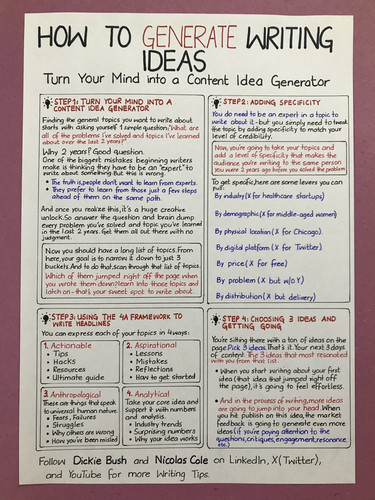 HOW TO GENERATE WRITING
IDEAS
Turn Your Mind into a Content Idea Generator
STEP 1: TURN YOUR MIND INTO A
CONTENT IDEA GENERATOR
Finding the general topics you want to write about
starts with asking yourself 1 simple question. "What are
all of the problems I've solved and topics I've learned
about over the last 2 years?"
Why 2 years? Good question.
One of the biggest mistakes beginning writers
make is thinking they have to be an "expert" to
write about something. But this is wrong.
• The truth is, people don't want to learn from experts.
• They prefer to learn from those just a few steps
ahead of them on the same path.
And once you realize this, it's a huge creative
unlock. So answer the question and brain dump
every problem you've solved and topic you've learned
in the last 2 years. Get them all out there with no
judgment.
Now you should have a long list of topics. From
here, your goal is to narrow it down to just 3
buckets. And to do that, scan through that list of topics.
Which of them jumped right off the page when
you wrote them down? Learn into those topics and
latch on - that's your sweet spot to write about.
STEP 2: ADDING SPECIFICITY
You do need to be an expert in a topic to
write about it - but you simply need to tweak
the topic by adding specificity to match your
level of credibility.
Now, you're going to take your topics and
add a level of specificity that makes the
audience you're writing to the same person
you were 2 years ago before you solved the problem
To get specific, here are some levers you can
pull:
By industry (X for healthcare startups)
By demographic (X for middle-aged women)
By physical location (X for Chicago)
By digital platform (X for Twitter)
By price (X for free)
By problem (X but w/o Y)
By distribution (X but delivery)
STEP 3: USING THE 4A FRAMEWORK TO
WRITE HEADLINES
You can express each of your topics in 4 ways:
1. Actionable
• Tips
• Hacks
• Resources
• Ultimate guide
2. Aspirational
• Lessons
• Mistakes
• Reflections
• How to get started
3. Anthropological
These are things that speak
to universal human nature.
• Fears, Failures
• Struggles
• Why others are wrong
• How you've been misled
4. Analytical
Take your core idea and
support it with numbers
and analysis.
• Industry trends
• Surprising numbers
• Why your idea works
STEP 4: CHOOSING 3 IDEAS AND
GETTING GOING
You're sitting there with a ton of ideas on the
page. Pick 3 ideas. That's it. Your next 3 days
of content. The 3 ideas that most resonated
with you from that list.
• When you start writing about your first
idea (that idea that jumped right off
the page), it's going to feel effortless.
• And in the process of writing, more ideas
are going to jump into your head. When
you hit publish on this idea, the market
feedback is going to generate even more
ideas (if you're paying attention to the
questions, critiques, engagement, resonance,
etc.)
Follow Dickie Bush and Nicolas Cole on LinkedIn, X (Twitter),
and YouTube for more Writing Tips.